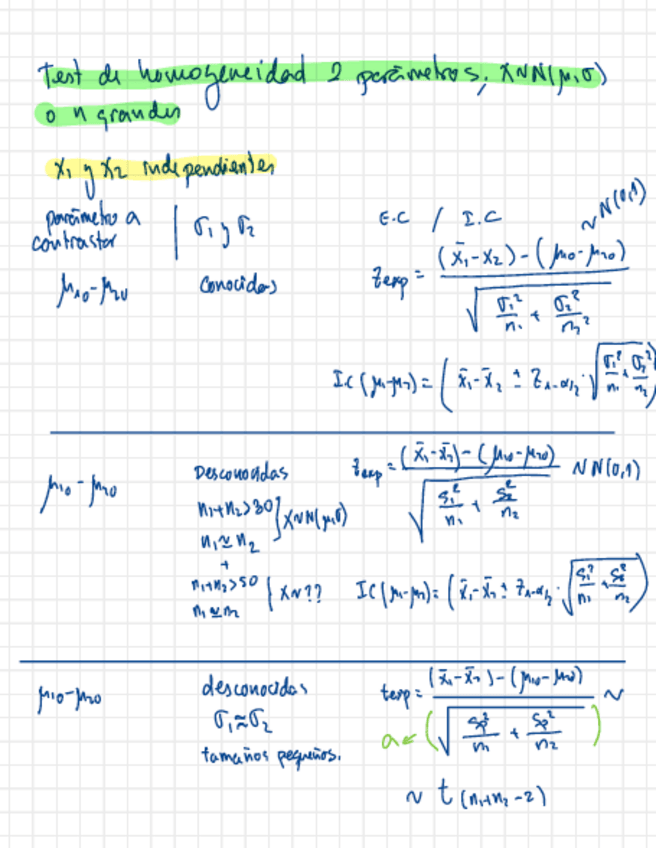 Test de homogeneidad 2 parámetros, X~N(μ,σ)
o n grandes
X₁ y X₂ independientes
parámetro a contrastar | σ₁ y σ₂ E.C / I.C
μ₁₀-μ₂₀ conocidas Zexp = ((x̄₁-x₂)-(μ₁₀-μ₂₀)) / √(σ₁²/n₁ + σ₂²/n₂²) ~N(0,1)
I.C (μ₁-μ₂) = (x̄₁-x̄₂ ± Z₁-α/₂ · √(σ₁²/n₁ + σ₂²/n₂)
μ₁₀-μ₂₀ Desconocidas Zexp = ((x̄₁-x̄₂)-(μ₁₀-μ₂₀)) / √(S₁²/n₁ + S₂²/n₂) ~N(0,1)
n₁+n₂>30
n₁≃n₂ } X~N(μ,σ)
+
n₁+n₂>50
n₁≃n₂ } X~??
IC(μ₁-μ₂) = (x̄₁-x̄₂ ± Z₁-α/₂ · √(S₁²/n₁ + S₂²/n₂))
μ₁₀-μ₂₀ desconocidas texp = ((x̄₁-x̄₂)-(μ₁₀-μ₂₀)) / (√(Sp²/n₁ + Sp²/n₂)) ~
σ₁≈σ₂ a ←
tamaños pequeños.
~ t (n₁+n₂-2)